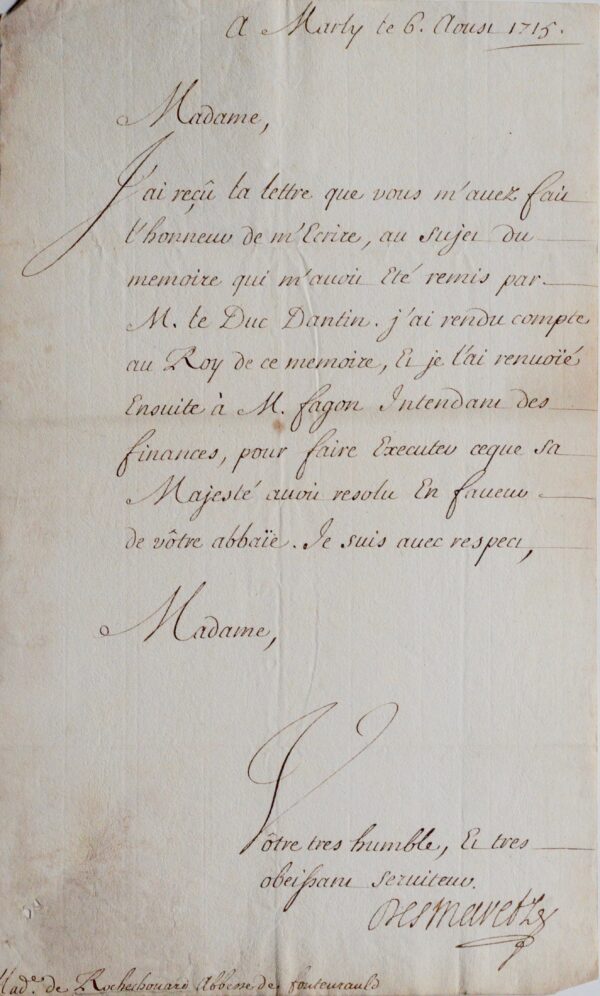 A Marly le 6. Aoust 1715.
Madame,
J'ai reçû la lettre que vous m'avez fait
l'honneur de m'Ecrire, au sujet du
memoire qui m'avoit Eté remis par
M. le Duc Dantin. j'ai rendu compte
au Roy de ce memoire, Et je l'ai renvoïé
Ensuite à M. fagon Intendant des
finances, pour faire Executer ceque sa
Majesté avoit resolu En faveur
de vôtre abbaïe. Je suis avec respect,
Madame,
Vôtre tres humble, Et tres
obeissant serviteur.
Desmaretz
Made. de Rochechouard Abbesse de fontevrauld